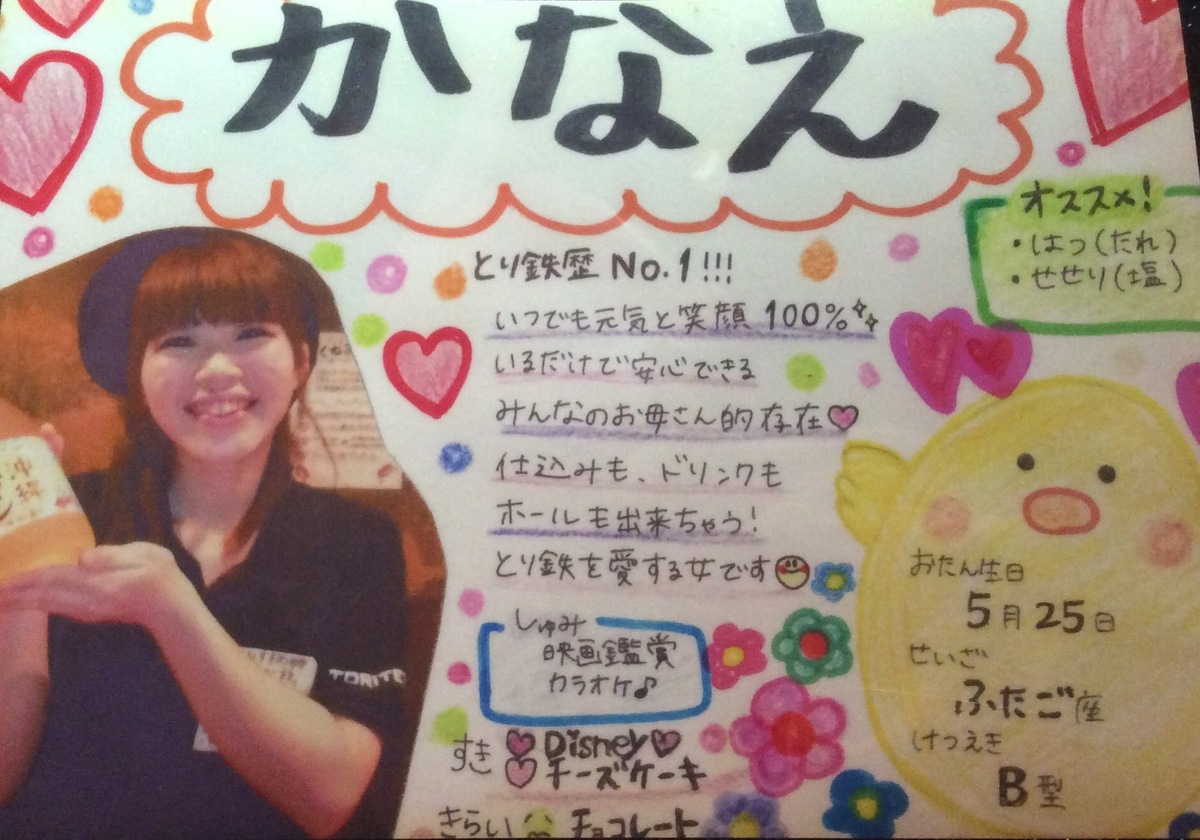 かなえ
オススメ!
・はつ(たれ)
・せせり(塩)
とり鉄歴 No.1!!!
いつでも元気と笑顔 100%
いるだけで安心できる
みんなのお母さん的存在♡
仕込みも、ドリンクも
ホールも出来ちゃう!
とり鉄を愛する女です
しゅみ
映画鑑賞
カラオケ♪
すき ♡ Disney ♡
♡ チーズケーキ
きらい チョコレート
おたん生日
5月25日
せいざ
ふたご座
けつえき
B型
沖縄
TORITE